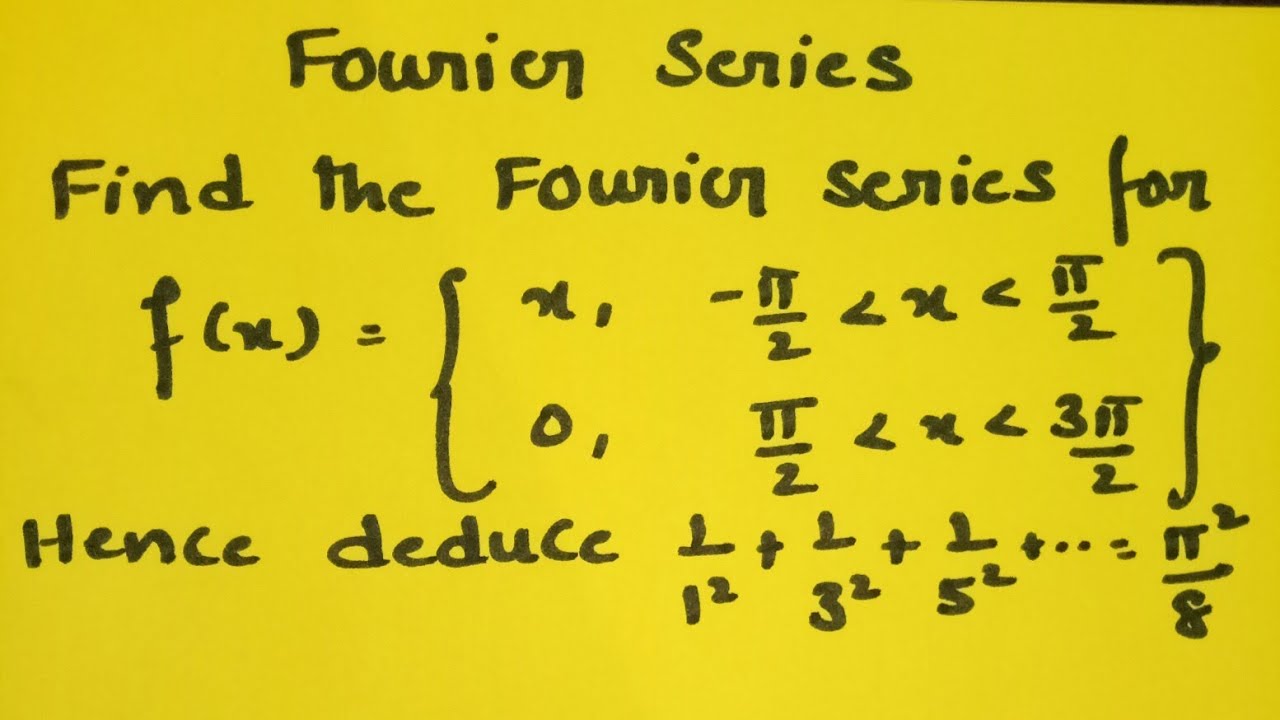 Fourier Series
Find the Fourier series for
f(x) = { x, -π/2 < x < π/2
0, π/2 < x < 3π/2 }
Hence deduce 1/1² + 1/3² + 1/5² + ... = π²/8